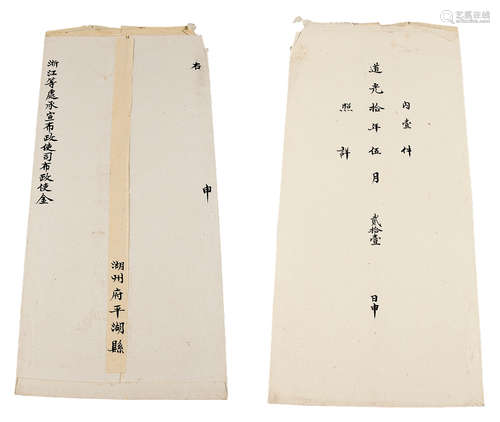 右
申
浙江等處承宣布政使司布政使金
湖州府平湖縣
內壹件
道光拾年伍月貳拾壹日申
照詳
艺狐在线